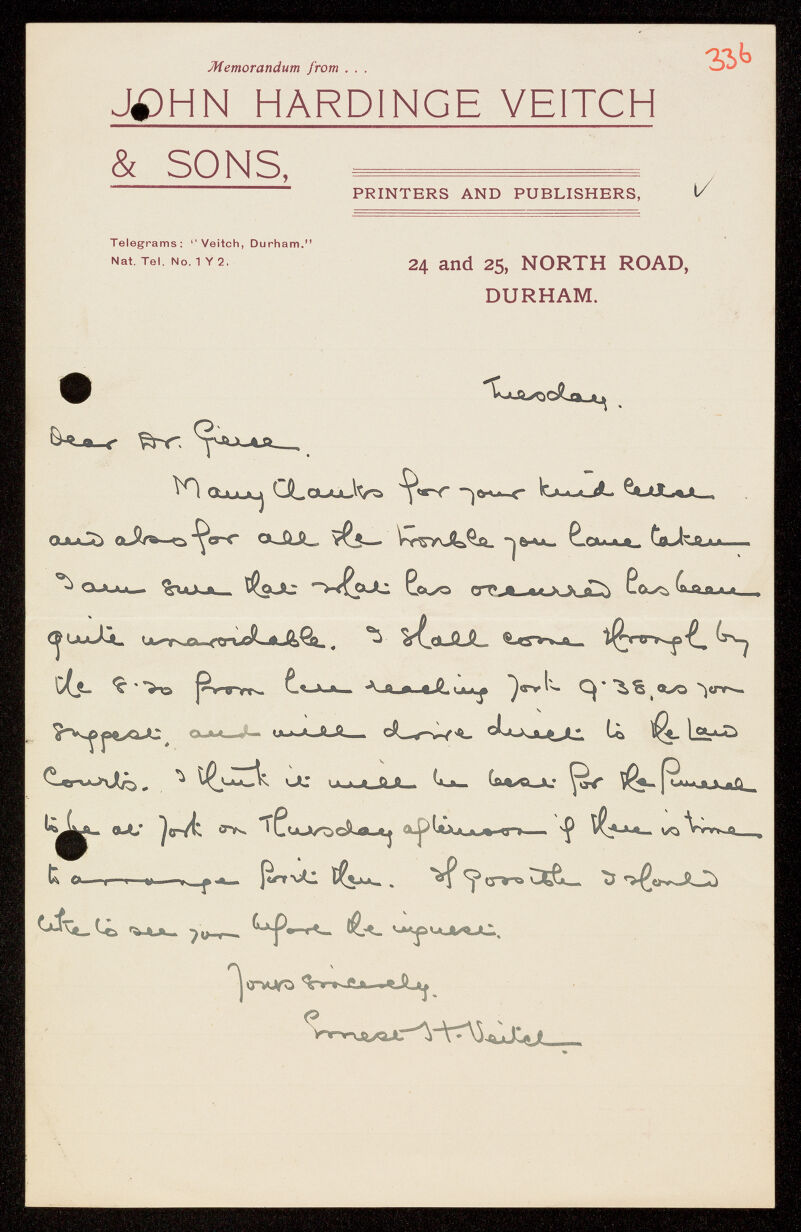 336
Memorandum from . . .
JOHN HARDINGE VEITCH
& SONS,
PRINTERS AND PUBLISHERS,
Telegrams: "Veitch, Durham."
Nat. Tel. No. 1 Y 2.
24 and 25, NORTH ROAD,
DURHAM.
Tuesday.
Dear Dr. Pierce.
Many thanks for your kind letter
and also for all the trouble you have taken
I am sure that what has occurred has been
quite unavoidable. I shall come through by
the 8.20 from here reaching York 9.38, as you
suggest, and will drive direct to the Law
Courts. I think it will be best for the funeral
to be at York on Thursday afternoon if there is time
to arrange for it then. If possible I should
like to see you before the inquest.
Yours sincerely.
Ernest H. Veitch.